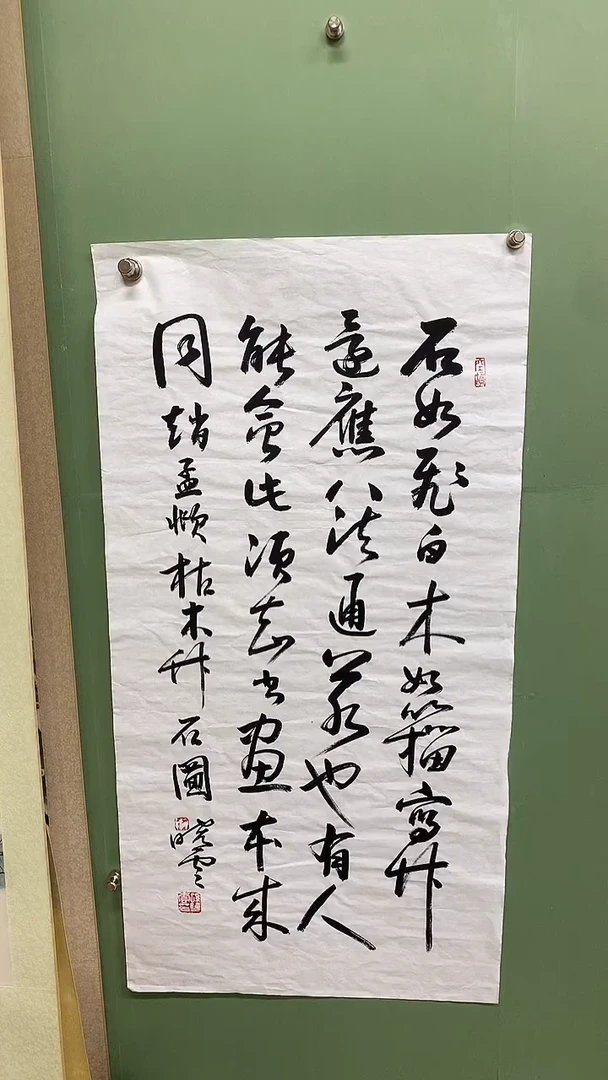 石如飛白木如籀寫竹
還應八法通若也有人
能會此須知書畫本來
同趙孟頫枯木竹石圖
曉雲